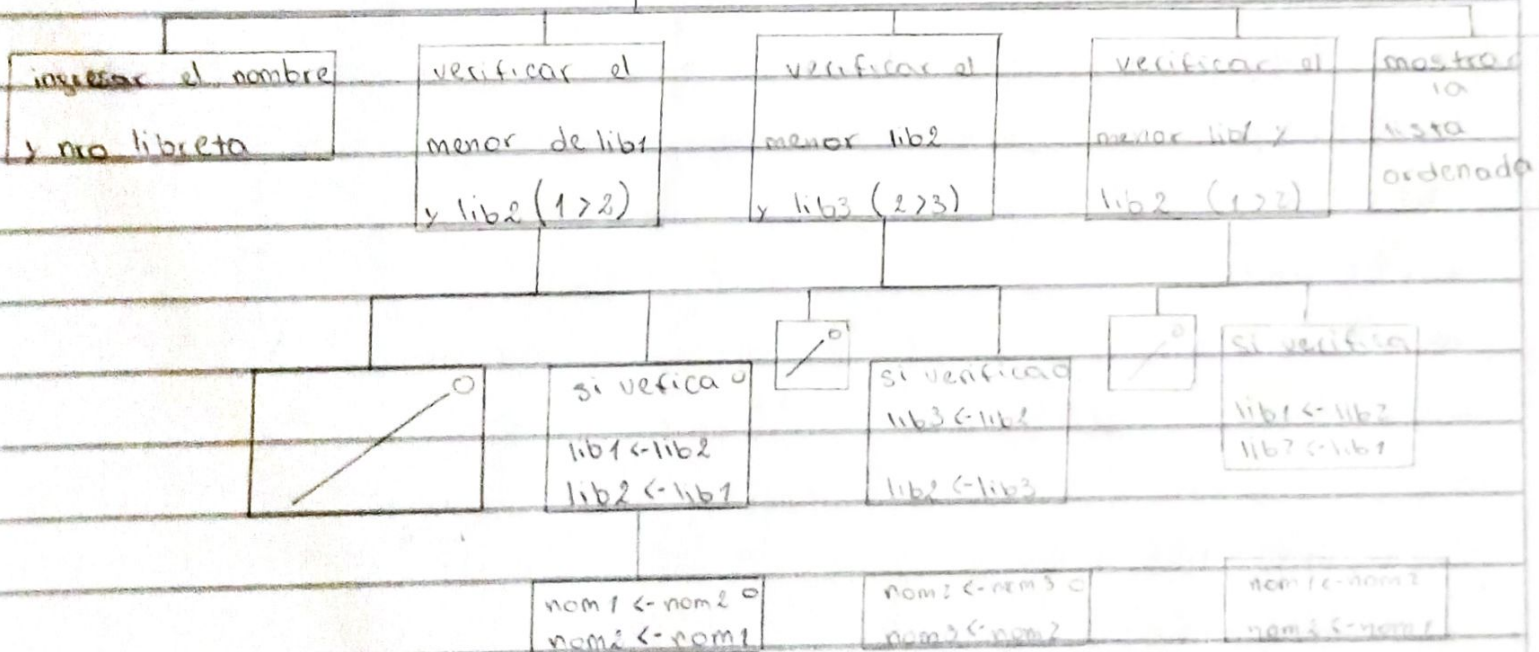 ingresar el nombre
y nro libreta
verificar el
menor de lib1
y lib2 (1>2)
verificar el
menor lib2
y lib3 (2>3)
verificar el
menor lib1 y
lib2 (1>2)
mostrar
la
lista
ordenada
si vefica
lib1 <- lib2
lib2 <- lib1
si verifica
lib3 <- lib2
lib2 <- lib3
si verifica
lib1 <- lib2
lib2 <- lib1
nom1 <- nom2
nom2 <- nom1
nom2 <- nom3
nom3 <- nom2
nom1 <- nom2
nom2 <- nom1